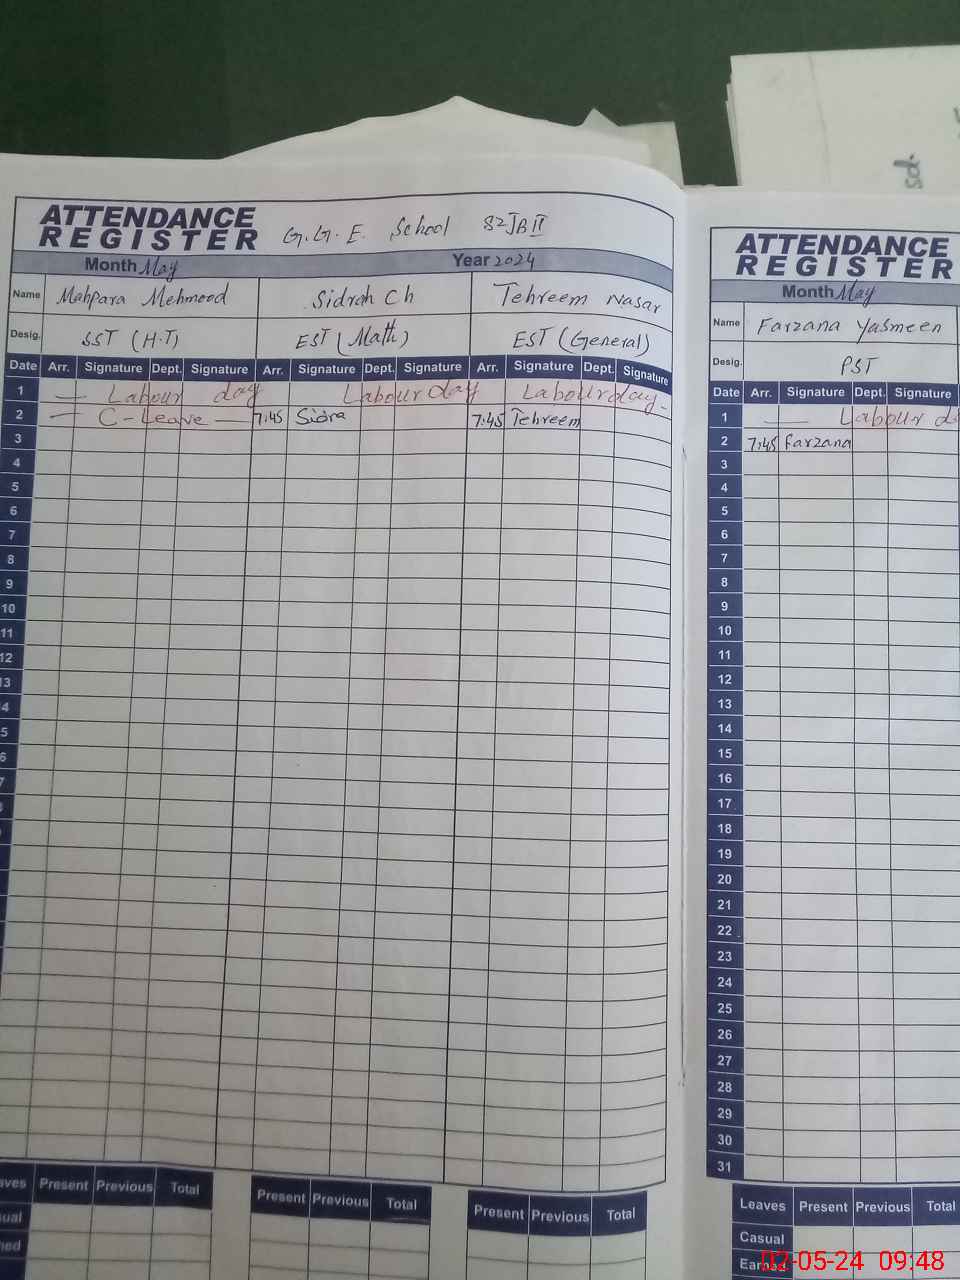 sd.
ATTENDANCE
REGISTER G.G.E. School 82JBII
Month May Year 2024
Name Mahpara Mehmood Sidrah Ch Tehreem Nasar
Desig. SST (H.T) EST (Math) EST (General)
Date Arr. Signature Dept. Signature Arr. Signature Dept. Signature Arr. Signature Dept. Signature
1 Labour day Labour day Labour day
2 C-Leave 7:45 Sidra 7:45 Tehreem
3
4
5
6
7
8
9
10
11
12
13
4
5
6
7
Leaves Present Previous Total Present Previous Total Present Previous Total
ual
ned
ATTENDANCE
REGISTER
Month May
Name Farzana Yasmeen
Desig. PST
Date Arr. Signature Dept. Signature
1 Labour d
2 7:45 farzana
3
4
5
6
7
8
9
10
11
12
13
14
15
16
17
18
19
20
21
22
23
24
25
26
27
28
29
30
31
Leaves Present Previous Total
Casual
Earned
02-05-24 09:48